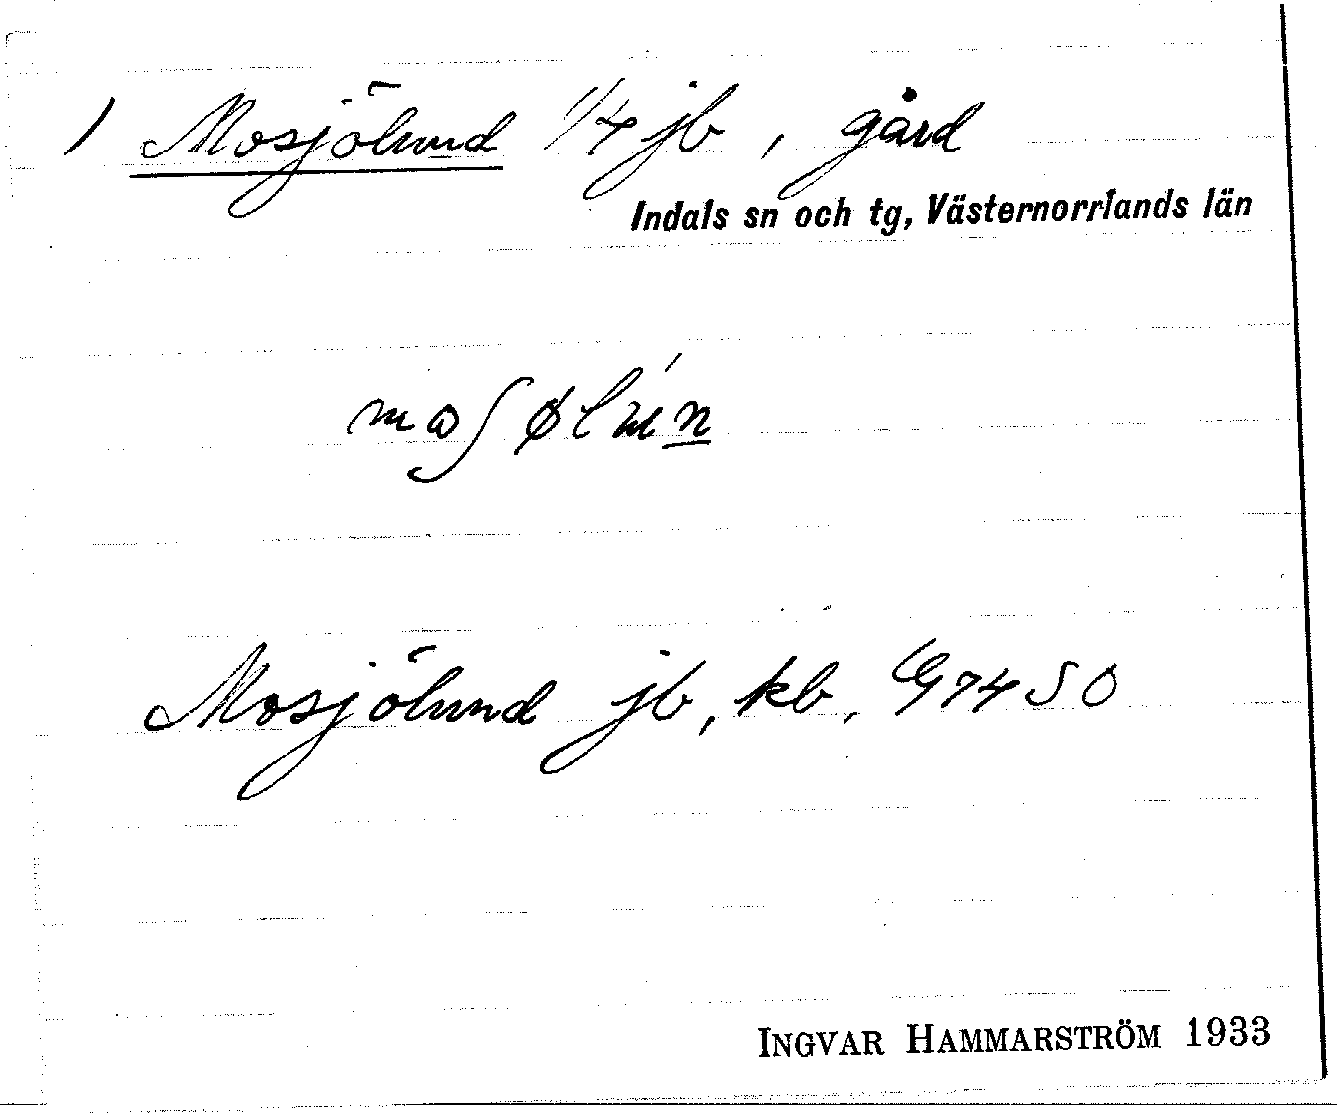 / Mosjölund 1/4 jb, gård
Indals sn och tg, Västernorrlands län
Mosjölund jb, kb, G7450
INGVAR HAMMARSTRÖM 1933